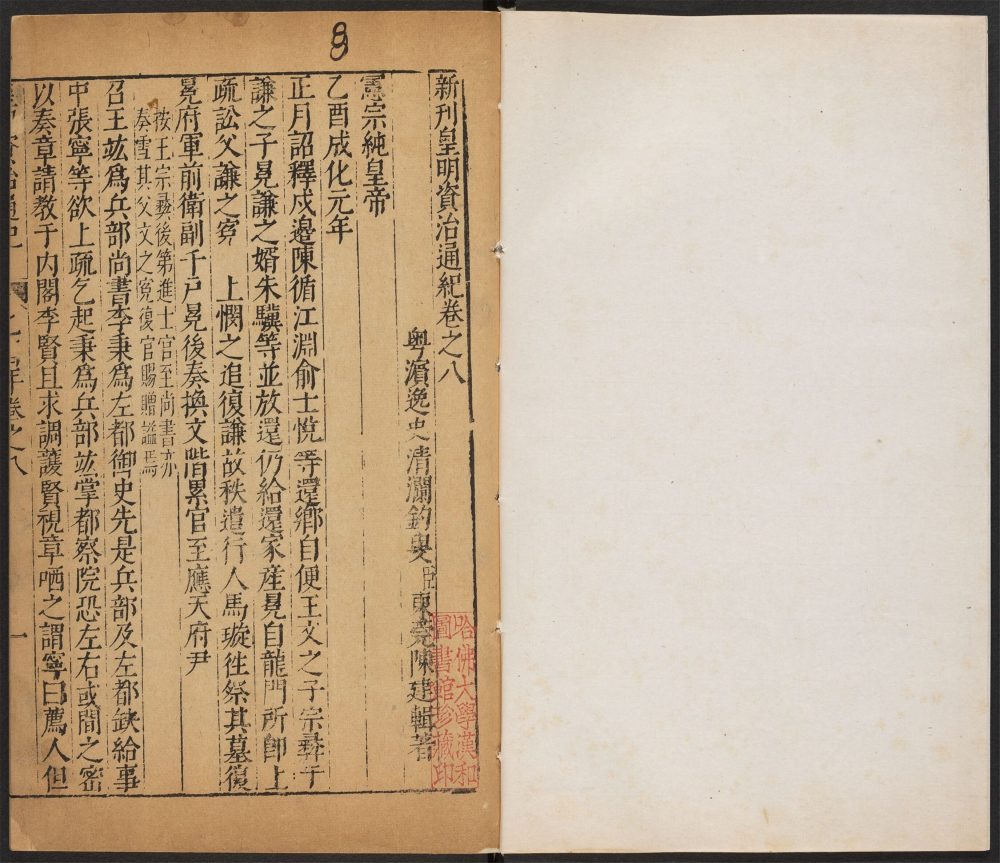 8
新刊皇明資治通紀卷之八
粵濱逸史清瀾釣叟臣東莞陳建輯著
憲宗純皇帝
乙酉成化元年
正月詔釋戍邊陳循江淵俞士悅等還鄉自便王文之子宗彞于
謙之子冕謙之婿朱驥等並放還仍給還家産冕自龍門所卽上
疏訟父謙之寃 上憫之追復謙故秩遣行人馬璇徃祭其墓復
冕府軍前衛副千戶冕後奏換文階累官至應天府尹
按王宗彞後第進士官至尚書亦
奏雪其父文之寃復官賜贈謚焉
召王竑爲兵部尚書李秉爲左都御史先是兵部及左都缺給事
中張寧等欲上疏乞起秉爲兵部竑掌都察院恐左右或間之密
以奏章請教于內閣李賢且求調護賢視章哂之謂寧曰薦人但
卷之八
一
哈佛大學漢和
圖書館珍藏印